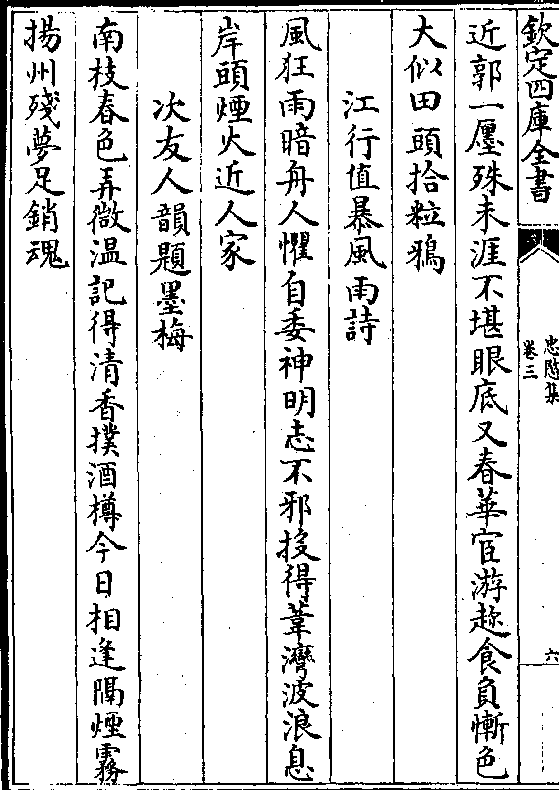 欽定四庫全書
忠階集
卷三
六
近郭一廛殊未涯不堪眼底又春華宦游趂食負慚色
大似田頭拾粒鴉
江行值暴風雨詩
風狂雨暗舟人懼自委神明志不邪投得葦灣波浪息
岸頭煙火近人家
次友人韻題墨梅
南枝春色弄微温記得清香撲酒樽今日相逢隔煙霧
揚州殘夢足銷魂